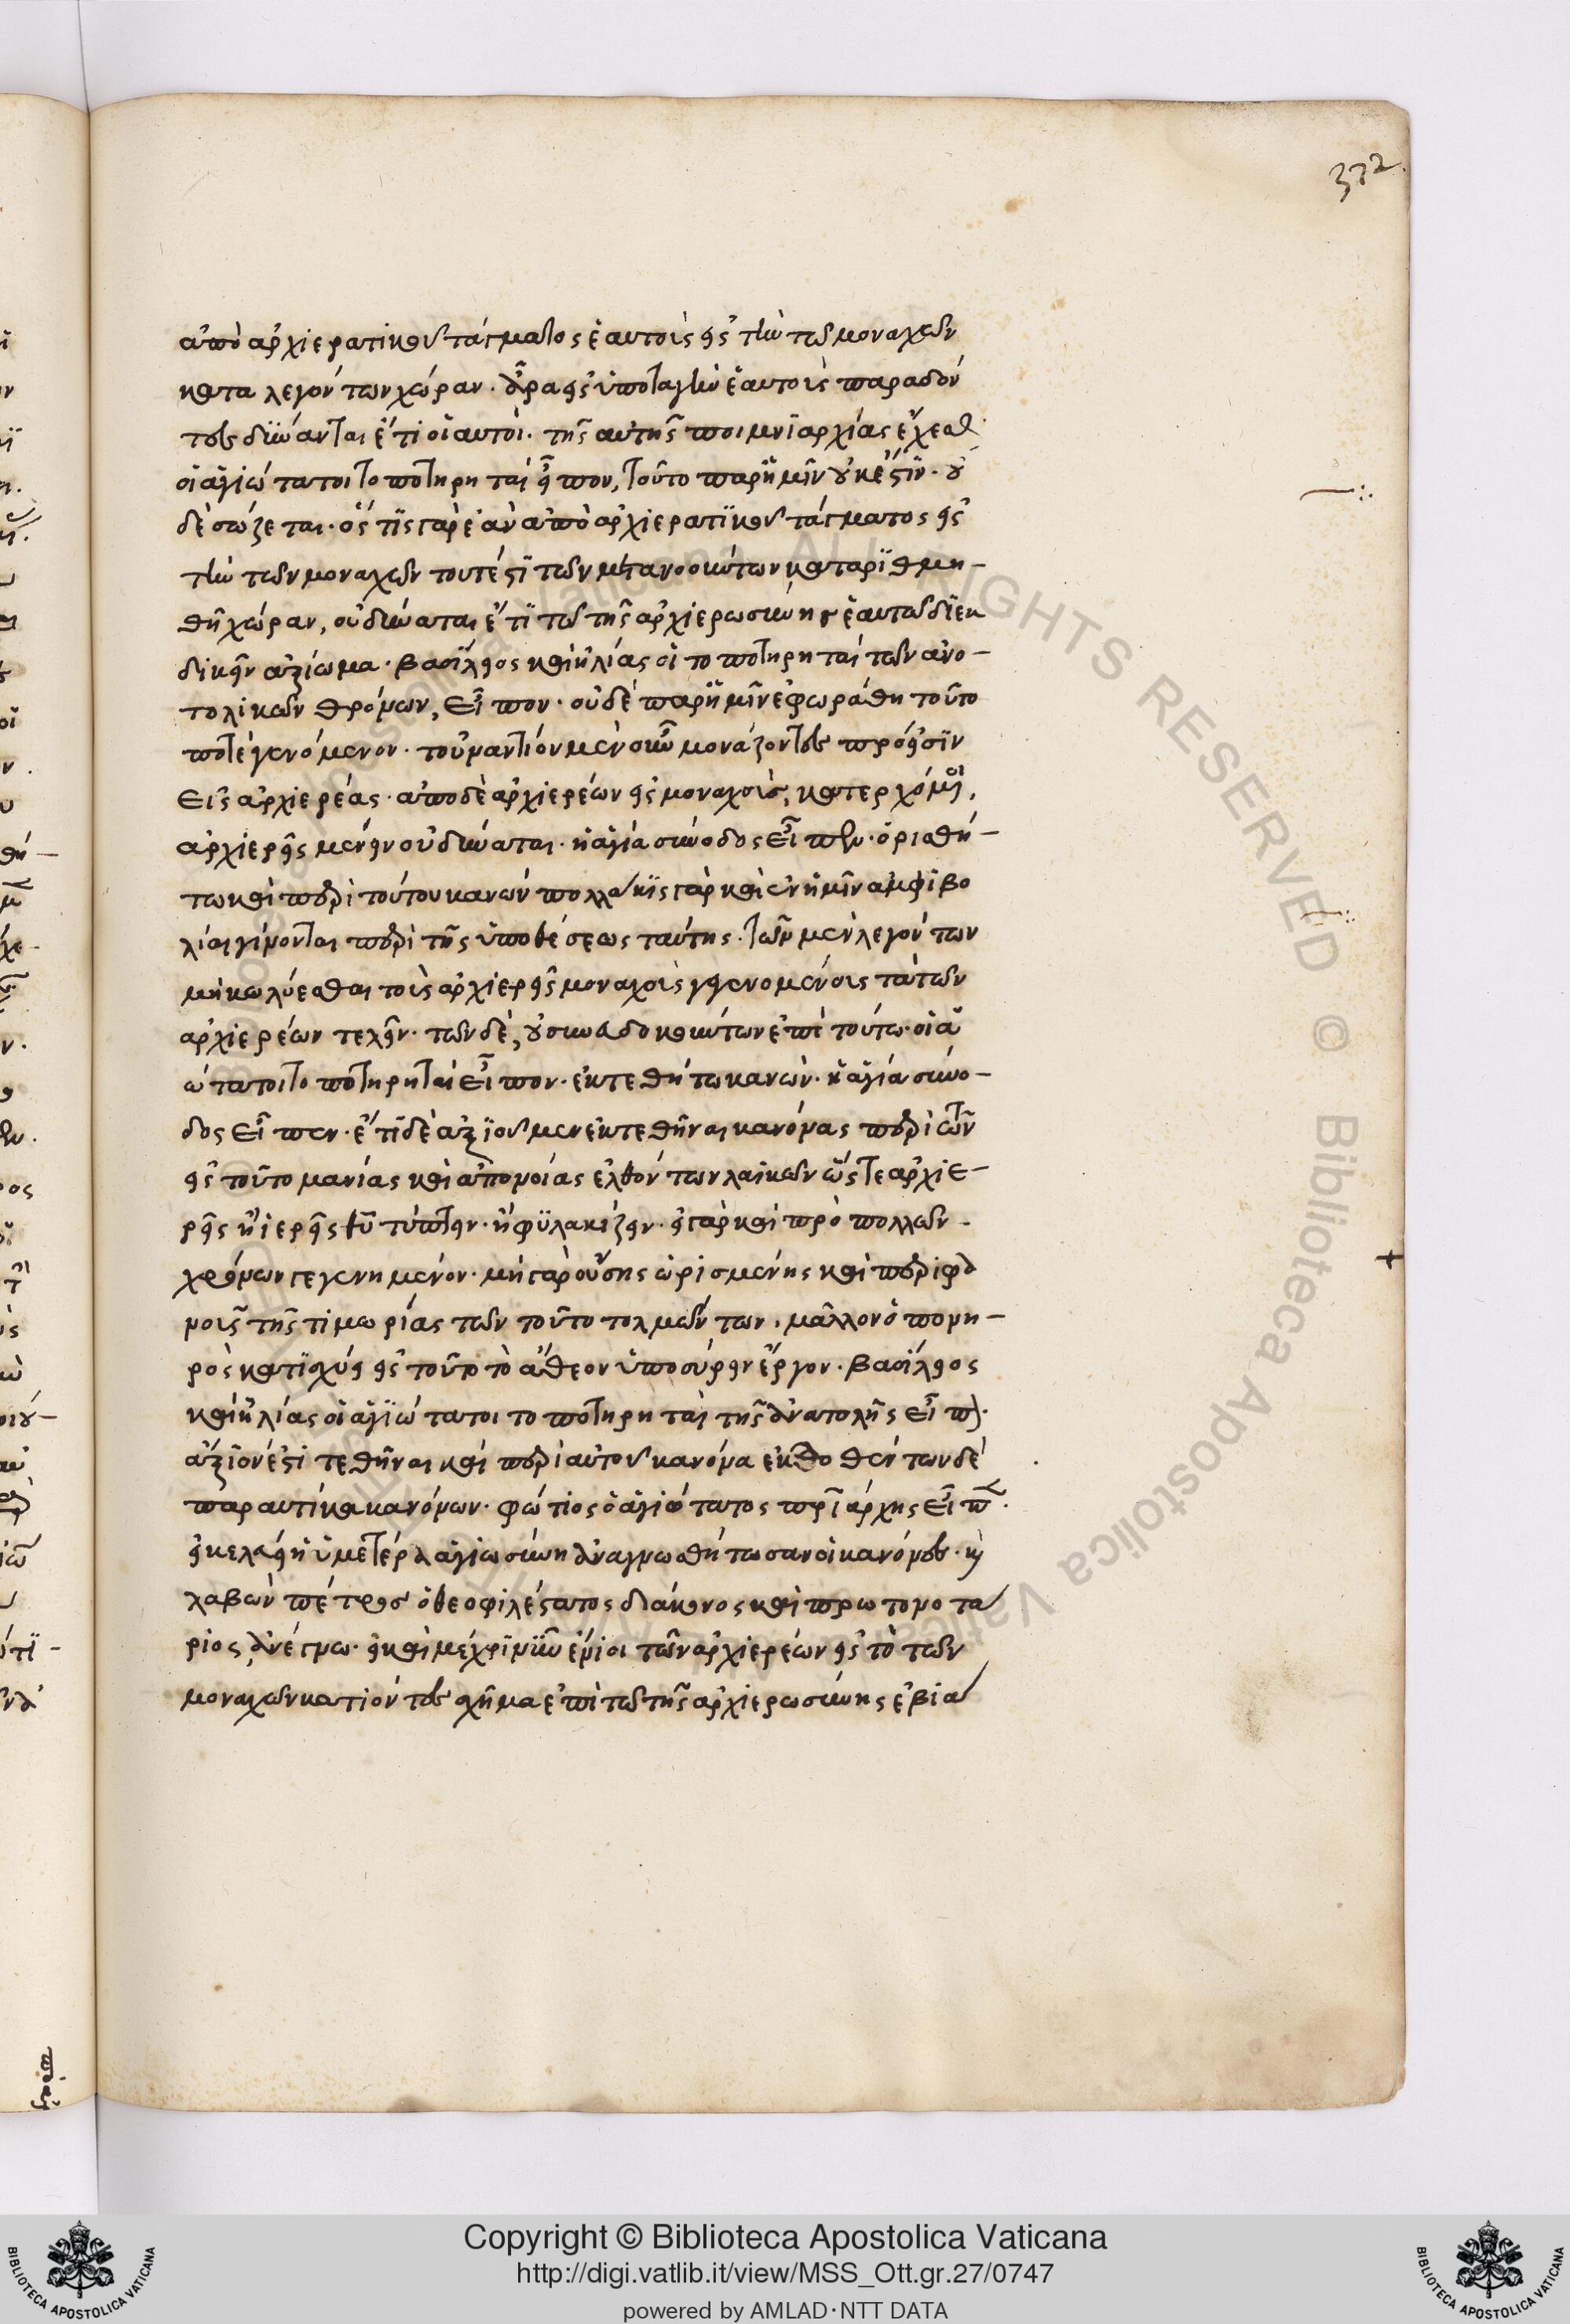 372
ἀπὸ ἀρχιερατικοῦ τάγματος ἑαυτοὺς εἰς τὴν τῶν μοναχῶν
καταλεγόντων χώραν. ἆρα εἰς ὑποταγὴν ἑαυτοὺς παραδόν
τες δύνανται ἔτι οἱ αὐτοὶ. τῆς αὐτῆς ποιμνιαρχίας ἔχεσθ.
οἱ ἁγιώτατοι τοποτηρηταὶ εἶπον, τοῦτο παρ' ἡμῖν οὐκ ἔστιν. οὐ
δὲ σώζεται. ὅστις γὰρ ἐὰν ἀπὸ ἀρχιερατικοῦ τάγματος εἰς
τὴν τῶν μοναχῶν τουτέστι τῶν μετανοούντων καταριθμη-
θῆ χώραν, οὐ δύναται ἔτι τὸ τῆς ἀρχιερωσύνης ἑαυτῶ διεκ
δικεῖν ἀξίωμα. βασίλειος καὶ ἠλίας οἱ τοποτηρηταὶ τῶν ἀνα-
τολικῶν θρόνων, εἶπον. οὐδὲ παρ' ἡμῖν ἐφωράθη τοῦτό
ποτε γενόμενον. τοὐναντίον μὲν οὖν μονάζοντες πρόεισιν
εἰς ἀρχιερέας. ἀπὸ δὲ ἀρχιερέων εἰς μοναχοὺς, κατερχόμενοι,
ἀρχιερεῖς μένειν οὐ δύναται. ἡ ἁγία σύνοδος εἶπεν. ὁρισθή-
τω καὶ περὶ τούτου κανών πολλάκις γὰρ καὶ ἐν ἡμῖν ἀμφιβο
λίαι γίνονται περὶ τῆς ὑποθέσεως ταύτης. τῶν μὲν λεγόντων
μὴ κωλύεσθαι τοὺς ἀρχιερεῖς μοναχοὺς γενομένους τὰ τῶν
ἀρχιερέων τελεῖν. τῶν δὲ, οὐ συνευδοκούντων ἐπὶ τούτω. οἱ ἁγι
ώτατοι τοποτηρηταὶ εἶπον. ἐκτεθήτω κανών. ἡ ἁγία σύνο-
δος εἶπεν. ἔτι δὲ ἀξιοῦμεν ἐκτεθῆναι κανόνας περὶ τῶν
εἰς τοῦτο μανίας καὶ ἀπονοίας ἐλθόντων λαικῶν ὥστε ἀρχιε-
ρεῖς ἢ ἱερεῖς τύπτειν. ἢ φυλακίζειν. εἰ γὰρ καὶ πρὸ πολλῶν
χρόνων γεγενημένον. μὴ γὰρ οὔσης ὡρισμένης καὶ περιφα
νοῦς τῆς τιμωρίας τῶν τοῦτο τολμώντων. μᾶλλον ὁ πονη-
ρὸς κατισχύει εἰς τοῦτο τὸ ἄθεον ὑποσύρειν ἔργον. βασίλειος
καὶ ἠλίας οἱ ἁγιώτατοι τοποτηρηταὶ τῆς ἀνατολῆς εἶπον.
ἄξιόν ἐστι τεθῆναι καὶ περὶ αὐτοῦ κανόνα ἐκτεθέντων δὲ
παραυτίκα κανόνων. φώτιος ὁ ἁγιώτατος πατριάρχης εἶπεν.
εἰ κελεύει ἡ ὑμετέρα ἁγιωσύνη ἀναγνωσθήτωσαν οἱ κανόνες. καὶ
λαβὼν πέτρος ὁ θεοφιλέστατος διάκονος καὶ πρωτονοτά
ριος, ἀνέγνω. εἰ καὶ μέχρι νῦν ἔνιοι τῶν ἀρχιερέων εἰς τὸ τῶν
μοναχῶν κατιόντες σχῆμα ἐπὶ τῶ τῆς ἀρχιερωσύνης ἐβιά
Copyright © Biblioteca Apostolica Vaticana
http://digi.vatlib.it/view/MSS_Ott.gr.27/0747
powered by AMLAD·NTT DATA